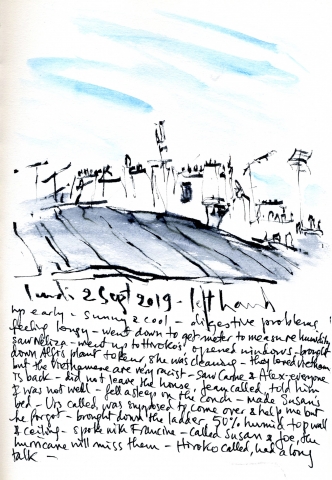 lundi 2 Sept 2019 -
up early - sunny & cool - digestive problems
feeling longy - went down to get meter to measure humidity
saw Neliza - went up to Hiroko's, opened windows - brought
down Alfios plant to Ken, she was cleaning - they loved Vietnam
but the Vietnamese are very racist - saw Carine & Alex - everyone
is back - did not leave the house, Jean called, told him
I was not well - fell asleep on the couch - made Susan's
bed - Urs called, was supposed to come over & help me but
he forgot - brought down the ladder, 50% humid top wall
& ceiling - spoke with Francine - called Susan & Joe, the
hurricane will miss them - Hiroko called, had a long
talk -